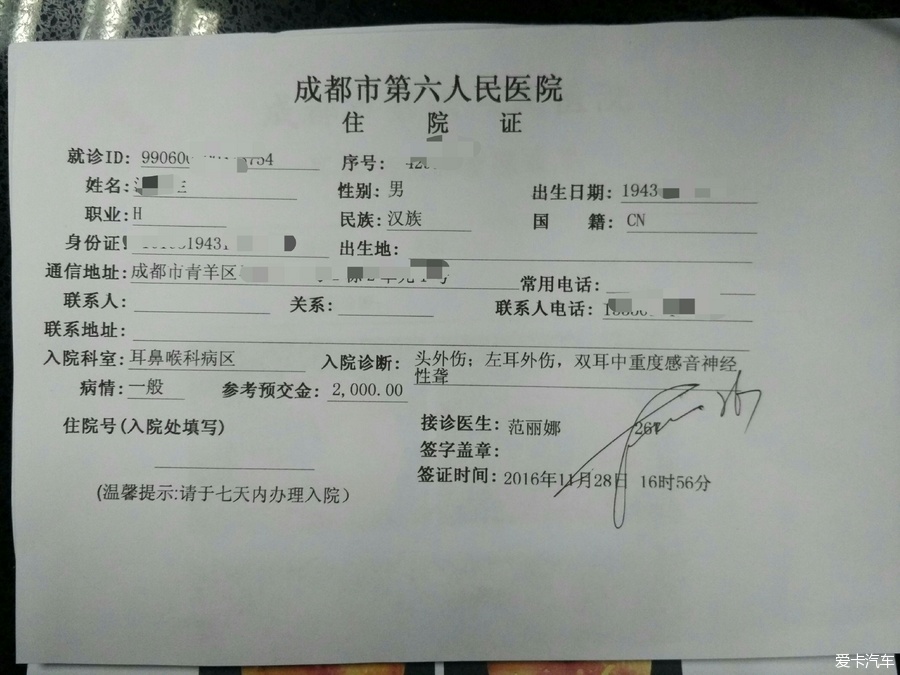 成都市第六人民医院
住 院 证
就诊ID: 99060 3754 序号:
姓名: 性别: 男 出生日期: 1943
职业: H 民族: 汉族 国 籍: CN
身份证 1943 出生地:
通信地址: 成都市青羊区 常用电话:
联系人: 关系: 联系人电话:
联系地址:
入院科室: 耳鼻喉科病区 入院诊断: 头外伤; 左耳外伤, 双耳中重度感音神经
性聋
病情: 一般 参考预交金: 2,000.00
住院号(入院处填写) 接诊医生: 范丽娜
签字盖章:
签证时间: 2016年11月28日 16时56分
(温馨提示:请于七天内办理入院)
爱卡汽车